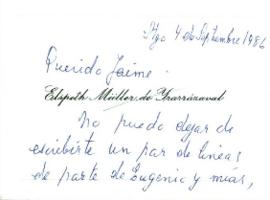 Stgo 4 de Septiembre 1986
Querido Jaime.
Elspeth Müller de Yrarrázaval
No puedo dejar de
escribirte un par de líneas
de parte de Eugenio y mías,